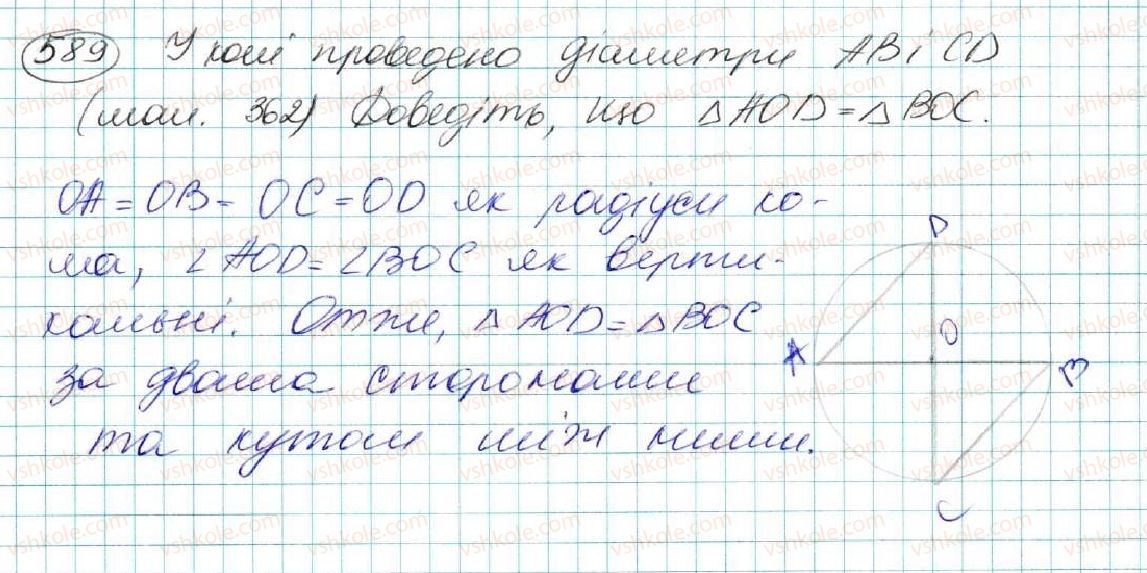 589 У колі проведено діаметри AB і CD
(мал. 362) Доведіть, що △AOD = △BOC.
OA = OB = OC = OD як радіуси ко-
ла, ∠AOD = ∠BOC як верти-
кальні. Отже, △AOD = △BOC
за двома сторонами
та кутом між ними.
D
O
A
B
C